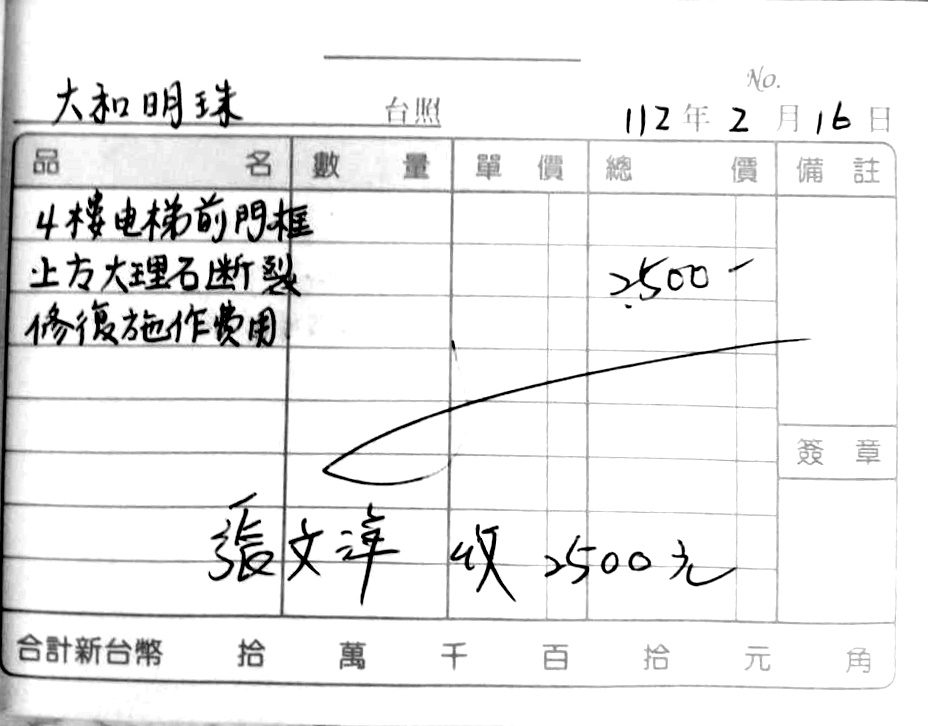 No.
大和明珠 台照 112年2月16日
品名 數量 單價 總價 備註
4樓电梯前門框
上方大理石断裂 2500-
修復施作費用
簽章
張文萍 收 2500元
合計新台幣 拾 萬 千 百 拾 元 角